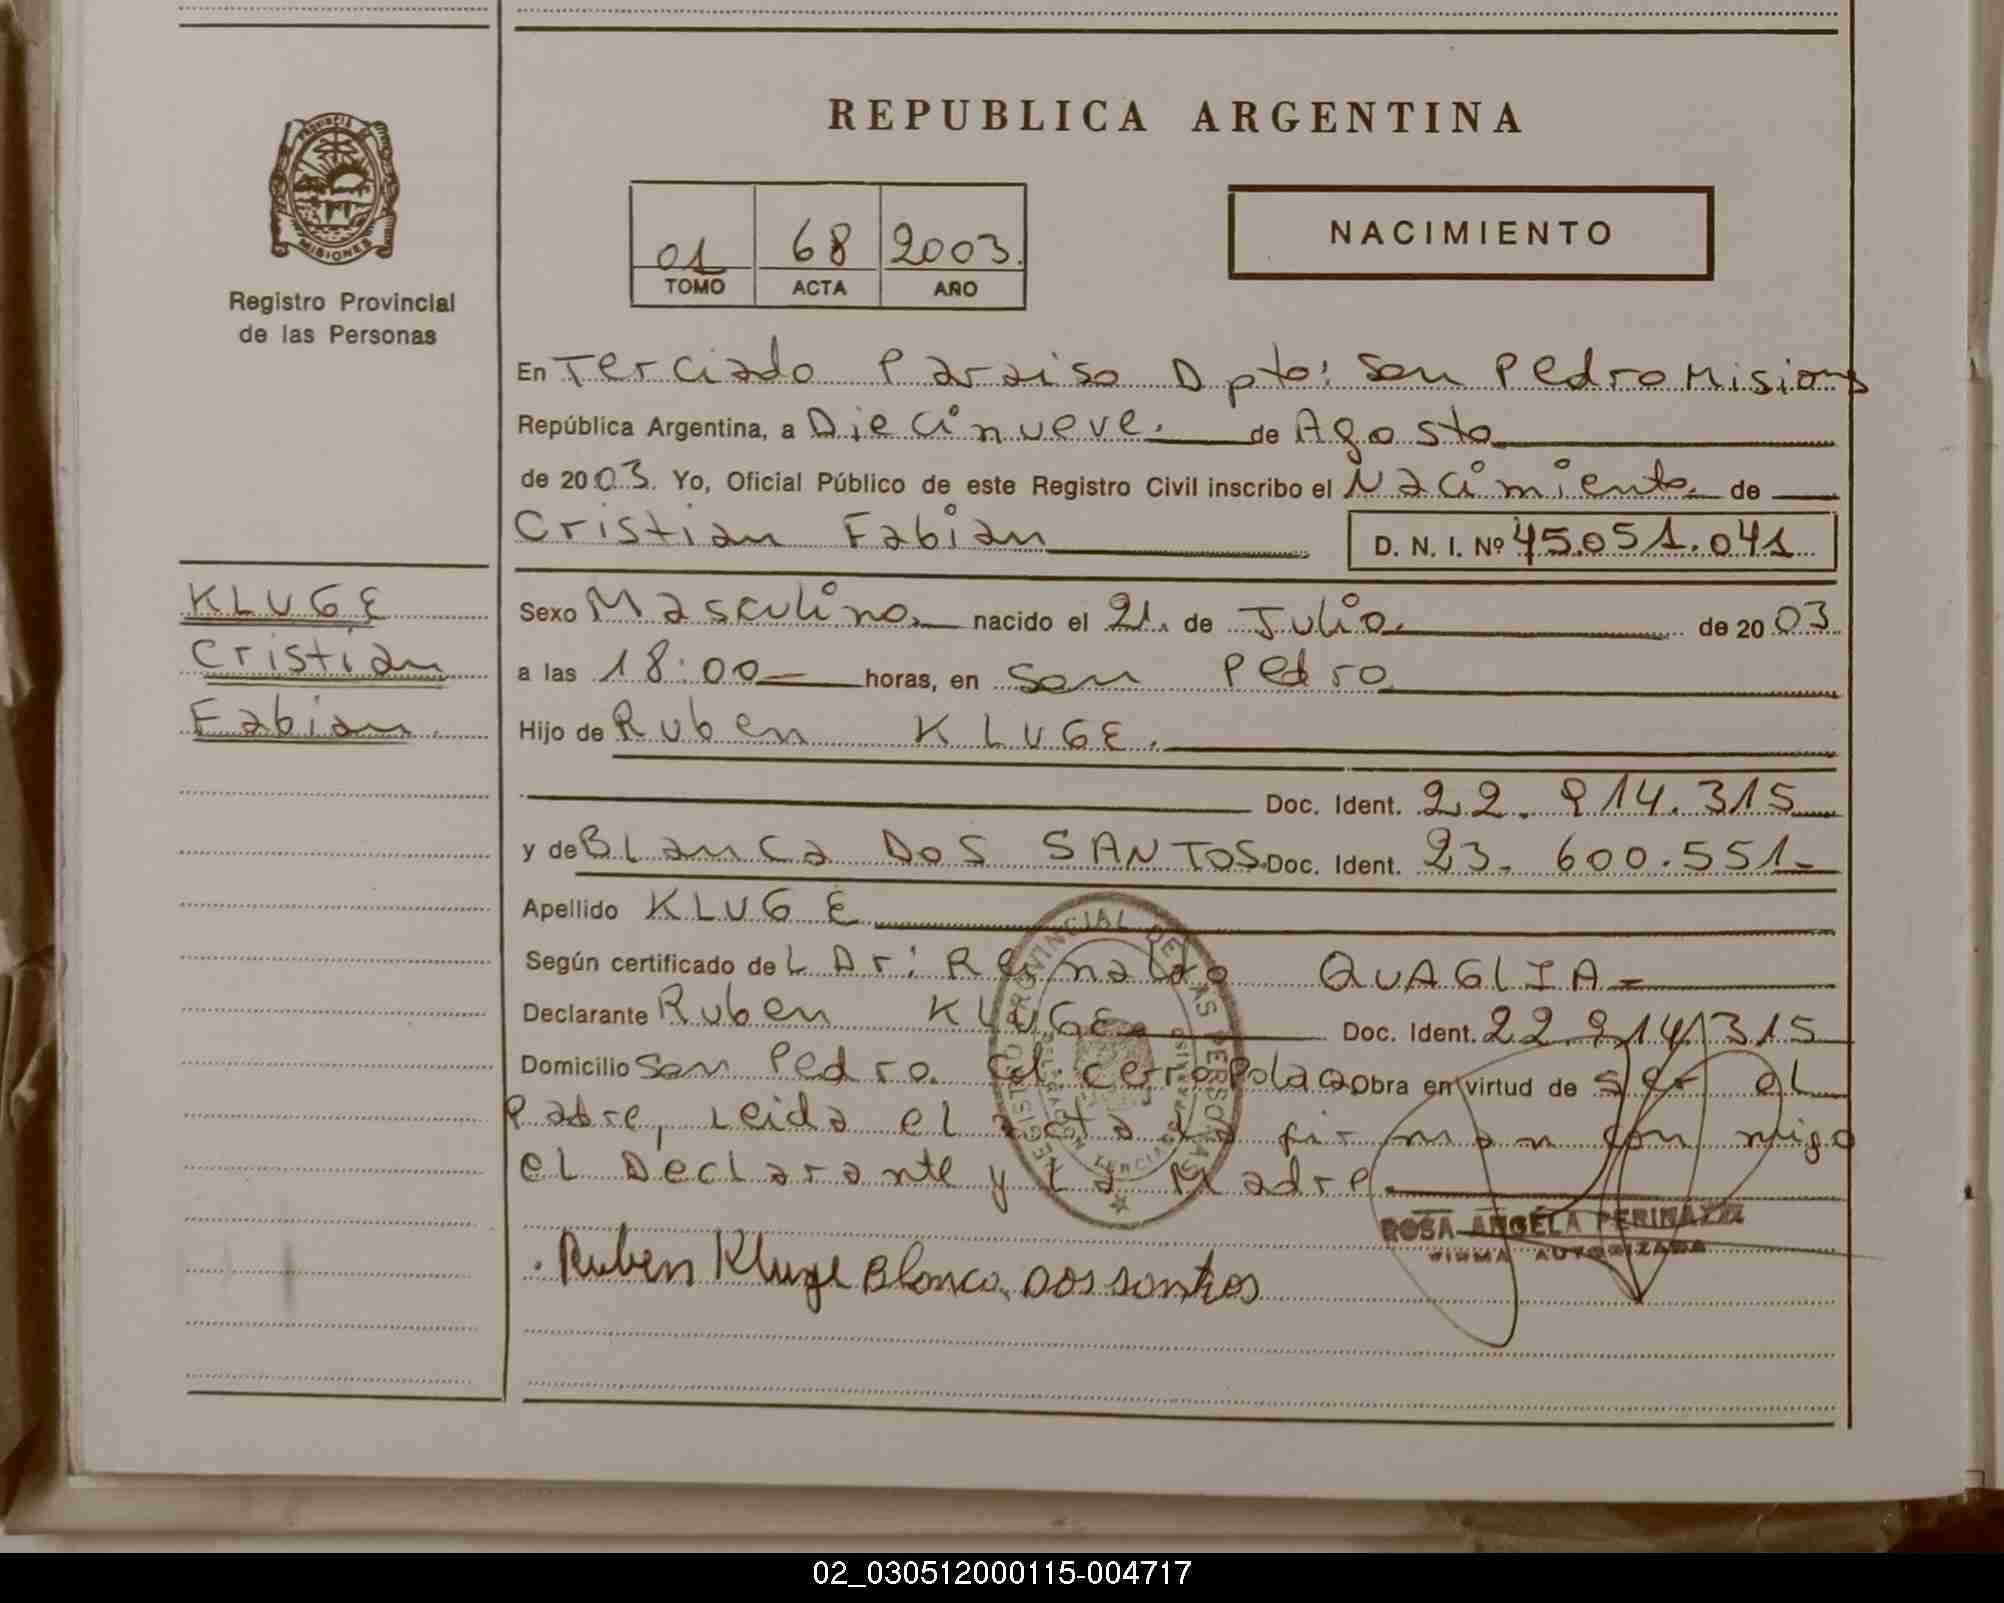 REPUBLICA ARGENTINA
PROVINCIA DE MISIONES
Registro Provincial
de las Personas
01 68 2003.
TOMO ACTA AÑO
NACIMIENTO
En Terciado Paraiso Dpto: San Pedro Misiones
República Argentina, a Diecinueve. de Agosto
de 2003. Yo, Oficial Público de este Registro Civil inscribo el Nacimiento de
Cristian Fabian D. N. I. Nº 45.051.041
KLUGE
Cristian
Fabian
Sexo Masculino. nacido el 21. de Julio. de 2003
a las 18:00 horas, en San Pedro
Hijo de Ruben KLUGE.
Doc. Ident. 22.914.315
y de BLanca DOS SANTOS. Doc. Ident. 23.600.551-
Apellido KLUGE
Según certificado deL Dr: Reinaldo QUAGLIA=
Declarante Ruben KLUGE Doc. Ident. 22.914.315
Domicilio San Pedro. Col. cerro Polaco Obra en virtud de ser el
Padre, Leida el acta La firman con migo
el Declarante y La Madre
REGISTRO PROVINCIAL DE LAS PERSONAS
ROSA ANGELA PERINAZZI
FIRMA AUTORIZADA
Ruben Kluge Blanca Dos santos
02_030512000115-004717